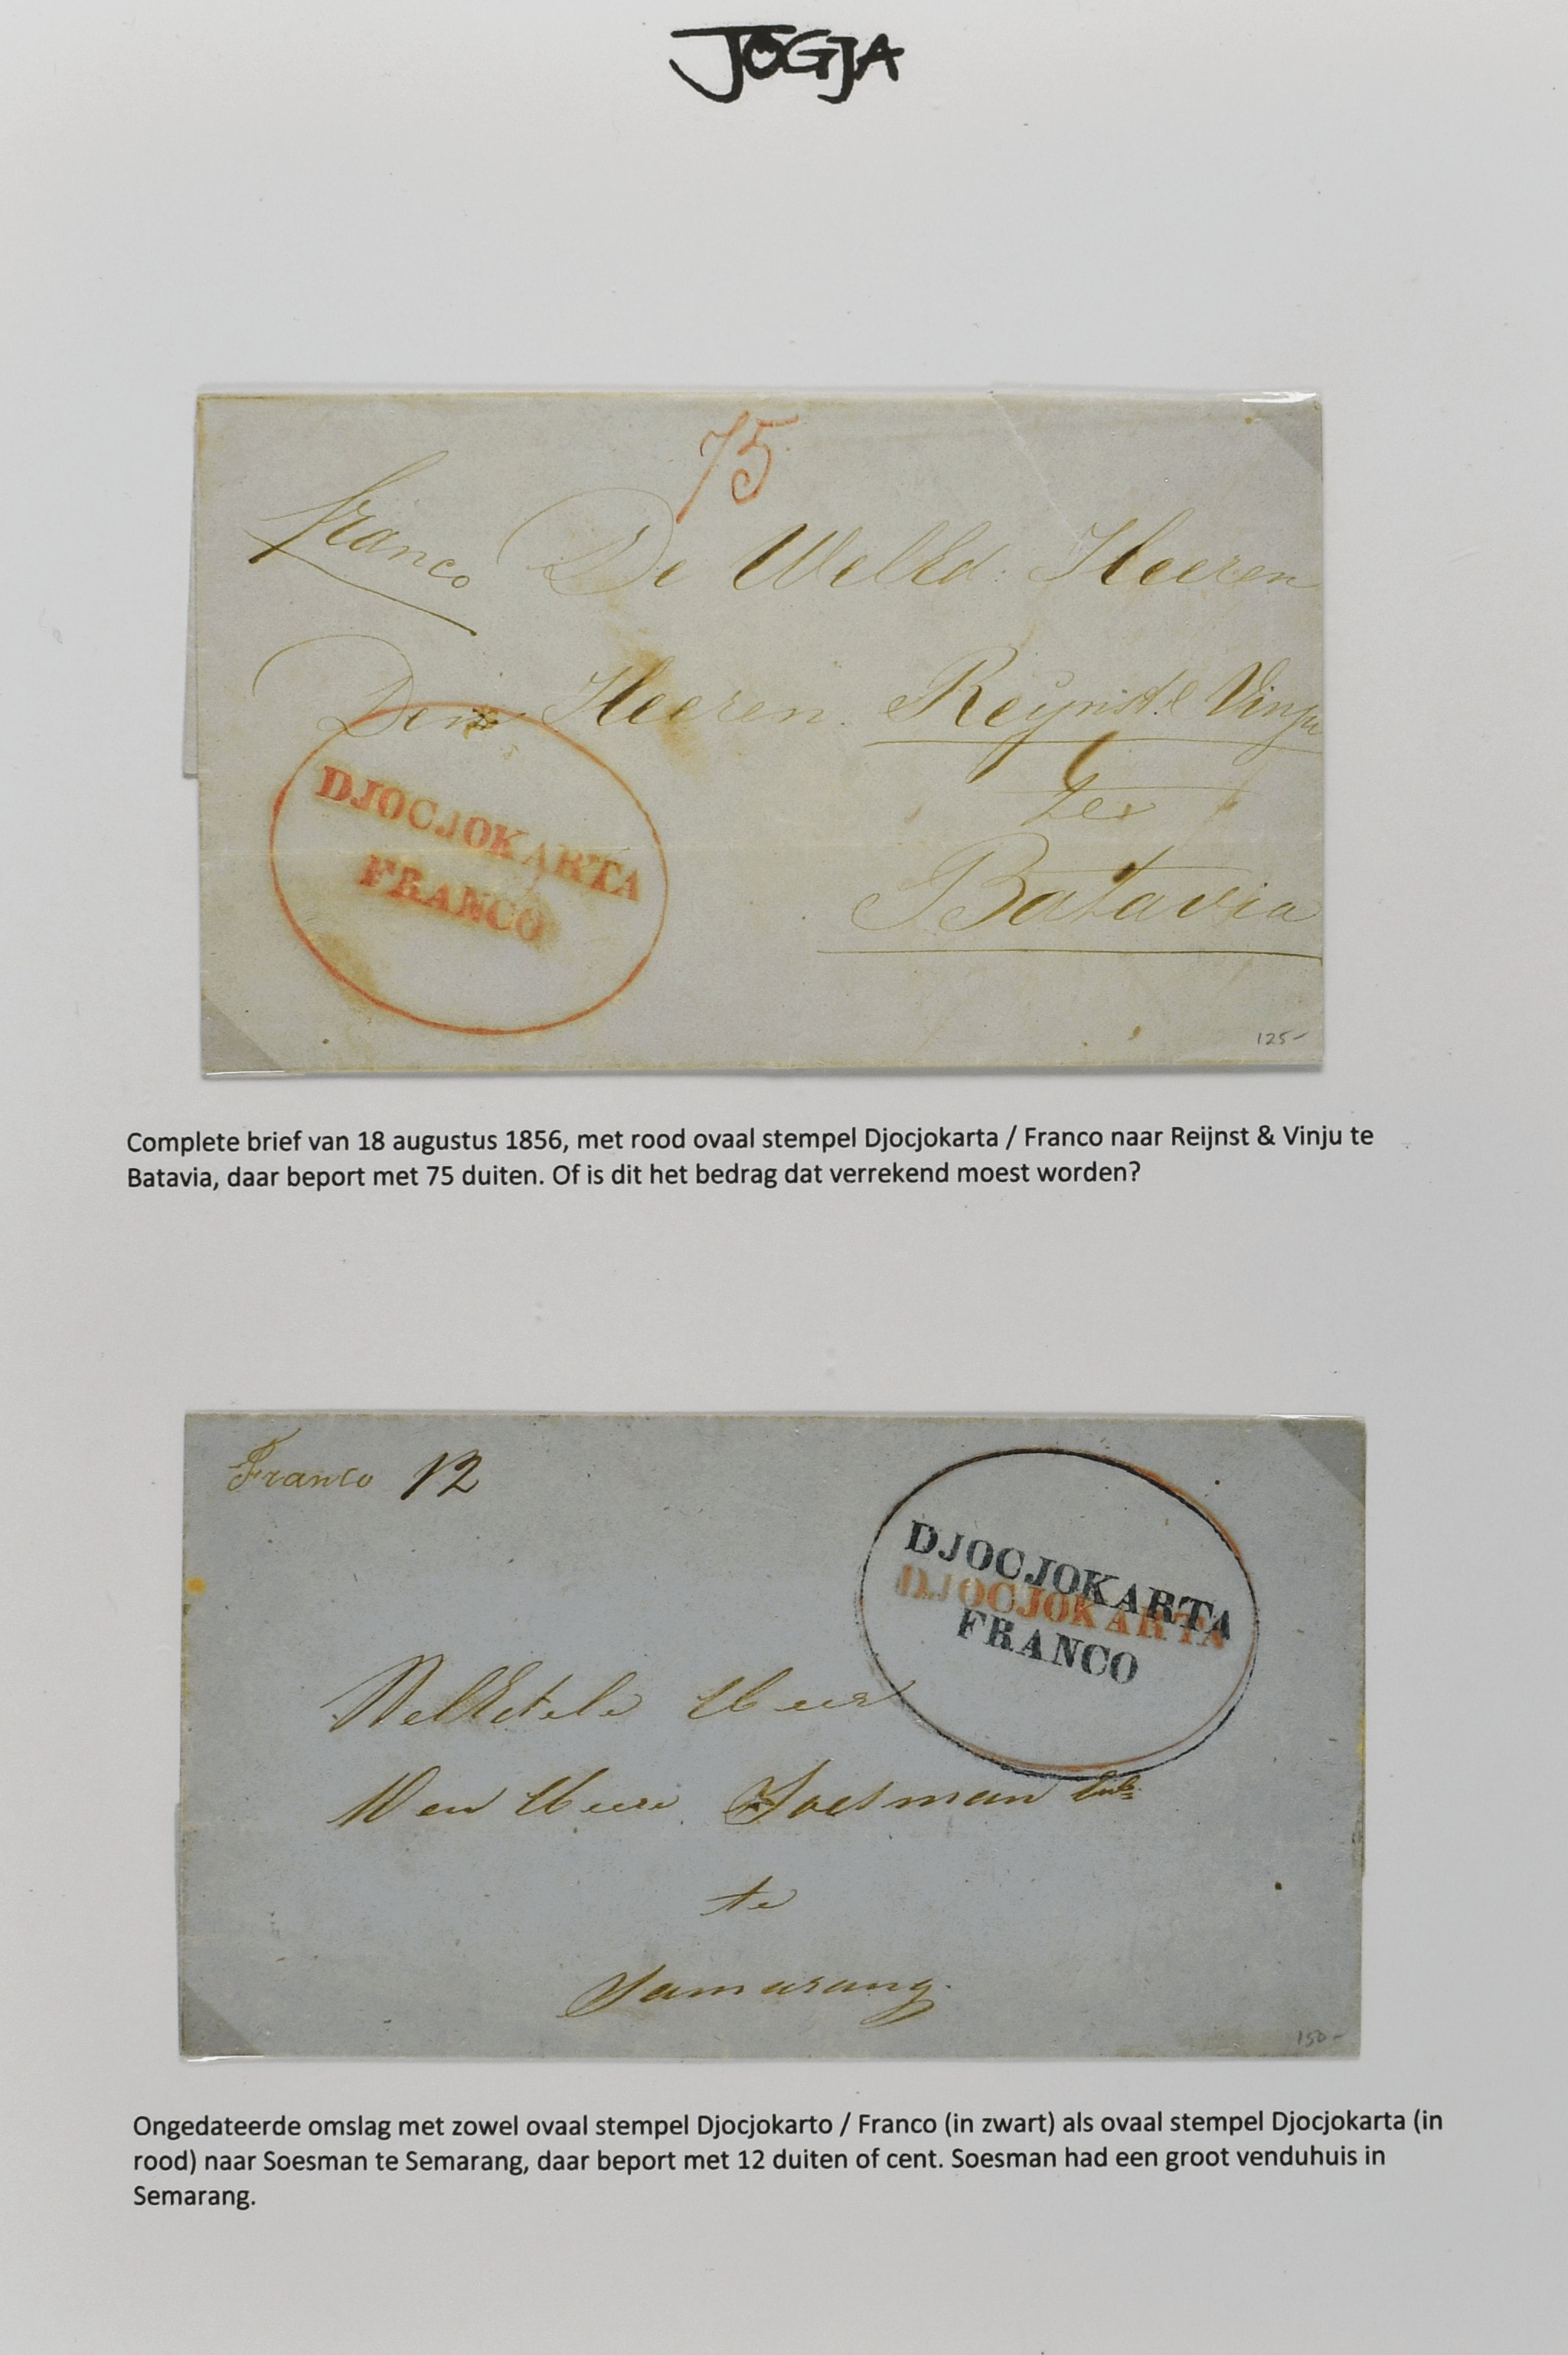 JOGJA
75
franco De WelEd. Heeren
Den Heeren Reijnst & Vinju
te
DJOCJOKARTA
FRANCO
Batavia
125-
Complete brief van 18 augustus 1856, met rood ovaal stempel Djocjokarta / Franco naar Reijnst & Vinju te
Batavia, daar beport met 75 duiten. Of is dit het bedrag dat verrekend moest worden?
Franco 12
DJOCJOKARTA
DJOCJOKARTA
FRANCO
WelEdele Heer
Den Heere Soesman
te
Samarang.
150-
Ongedateerde omslag met zowel ovaal stempel Djocjokarto / Franco (in zwart) als ovaal stempel Djocjokarta (in
rood) naar Soesman te Semarang, daar beport met 12 duiten of cent. Soesman had een groot venduhuis in
Semarang.